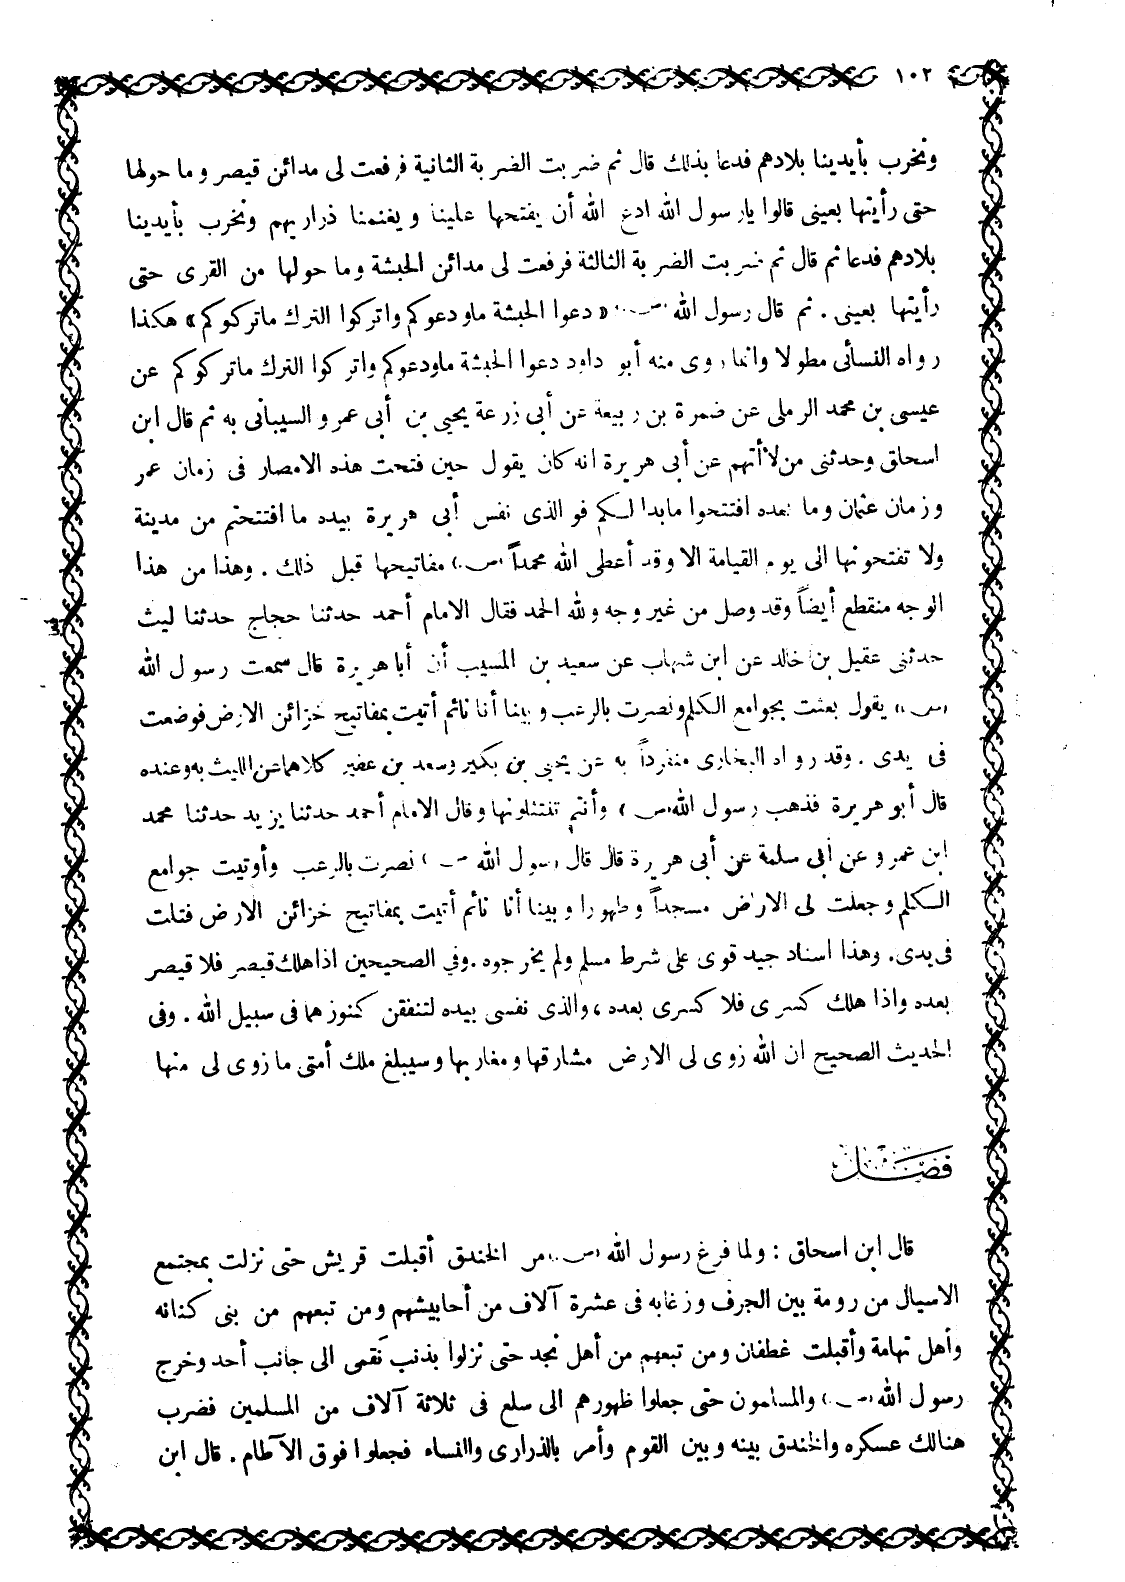 ١٠٢
ونخرب بأيدينا بلادهم فدعا بذلك قال ثم ضربت الضربة الثانية فرفعت لى مدائن قيصر وما حولها
حتى رأيتها بعينى قالوا يارسول الله ادع الله أن يفتحها علينا ويغنمنا ذراريهم ونخرب بأيدينا
بلادهم فدعا ثم قال ثم ضربت الضربة الثالثة فرفعت لى مدائن الحبشة وما حولها من القرى حتى
رأيتها بعينى . ثم قال رسول الله (ص) « دعوا الحبشة ماودعوكم واتركوا الترك ماتركوكم » هكذا
رواه النسائى مطولا وانما روى منه أبو داود دعوا الحبشة ماودعوكم واتركوا الترك ماتركوكم عن
عيسى بن محمد الرملى عن ضمرة بن ربيعة عن أبى زرعة يحيى بن أبى عمرو السيبانى به ثم قال ابن
اسحاق وحدثنى من لا أتهم عن أبى هريرة انه كان يقول حين فتحت هذه الامصار فى زمان عمر
وزمان عثمان وما بعده افتتحوا مابدا لكم فو الذى نفس أبى هريرة بيده ما افتتحتم من مدينة
ولا تفتحونها الى يوم القيامة الا وقد أعطى الله محمداً (ص) مفاتيحها قبل ذلك . وهذا من هذا
الوجه منقطع أيضاً وقد وصل من غير وجه ولله الحمد فقال الامام أحمد حدثنا حجاج حدثنا ليث
حدثنى عقيل بن خالد عن ابن شهاب عن سعيد بن المسيب أن أبا هريرة قال سمعت رسول الله
(ص) يقول بعثت بجوامع الكلم ونصرت بالرعب وبينا أنا نائم أتيت بمفاتيح خزائن الارض فوضعت
فى يدى . وقد رواه البخارى منفرداً به عن يحيى بن بكير وسعد بن عفير كلاهما عن الليث به وعنده
قال أبو هريرة فذهب رسول الله (ص) وأنتم تنتثلونها وقال الامام أحمد حدثنا يزيد حدثنا محمد
ابن عمرو عن أبى سلمة عن أبى هريرة قال قال رسول الله (ص) نصرت بالرعب وأوتيت جوامع
الكلم وجعلت لى الارض مسجداً وطهورا وبينا أنا نائم أتيت بمفاتيح خزائن الارض فتلت
فى يدى. وهذا اسناد جيد قوى على شرط مسلم ولم يخرجوه .وفي الصحيحين اذا هلك قيصر فلا قيصر
بعده واذا هلك كسرى فلا كسرى بعده ، والذى نفسى بيده لتنفقن كنوزهما فى سبيل الله . وفى
الحديث الصحيح ان الله زوى لى الارض مشارقها ومغاربها وسيبلغ ملك أمتى ما زوى لى منها
فصل
قال ابن اسحاق : ولما فرغ رسول الله (ص) من الخندق أقبلت قريش حتى نزلت بمجتمع
الاسيال من رومة بين الجرف وزغابه فى عشرة آلاف من أحابيشهم ومن تبعهم من بنى كنانه
وأهل تهامة وأقبلت غطفان ومن تبعهم من أهل نجد حتى نزلوا بذنب نقمى الى جانب أحد وخرج
رسول الله (ص) والمسلمون حتى جعلوا ظهورهم الى سلع فى ثلاثة آلاف من المسلمين فضرب
هنالك عسكره والخندق بينه وبين القوم وأمر بالذرارى والنساء فجعلوا فوق الآطام . قال ابن